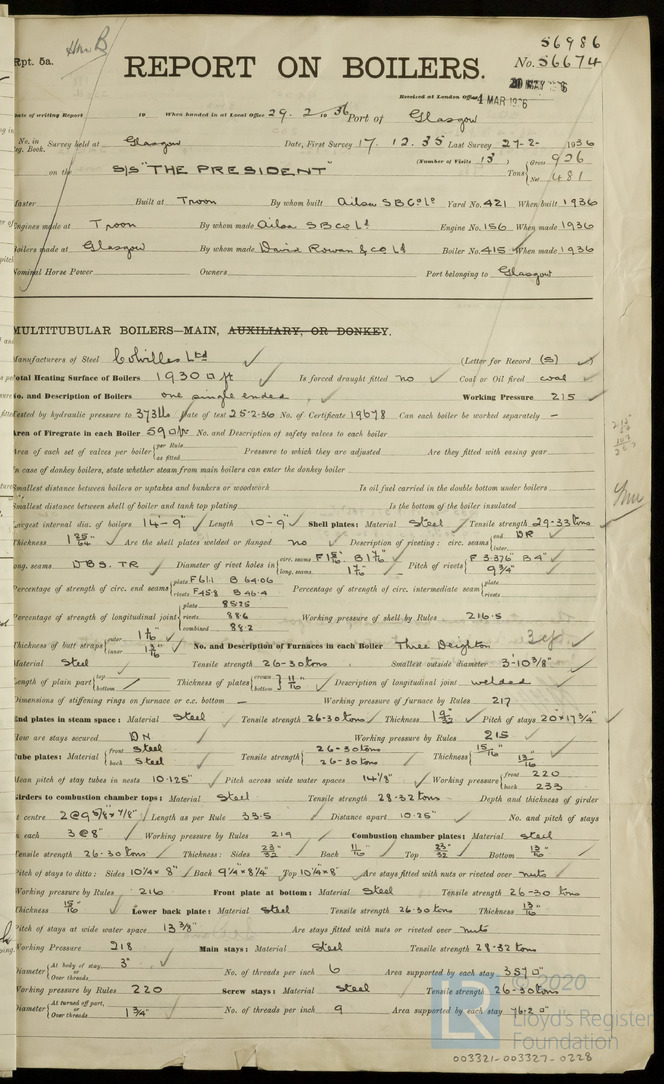 56986
Rpt. 5a.
REPORT ON BOILERS.
No. 56674
20 MAY 1936
Received at London Office 4 MAR 1936
Date of writing Report 19 When handed in at Local Office 29. 2 1936 Port of Glasgow
No. in Reg. Book. Survey held at Glasgow Date, First Survey 17. 12. 35 Last Survey 27-2- 1936
on the S/S "THE PRESIDENT" (Number of Visits 13) Tons Gross 926 Net 481
Master Built at Troon By whom built Ailsa S B Co Ld Yard No. 421 When built 1936
Engines made at Troon By whom made Ailsa S B Co Ld Engine No. 156 When made 1936
Boilers made at Glasgow By whom made David Rowan & Co Ld Boiler No. 415 When made 1936
Nominal Horse Power Owners Port belonging to Glasgow
MULTITUBULAR BOILERS—MAIN, AUXILIARY, OR DONKEY.
Manufacturers of Steel Colvilles Ltd (Letter for Record (S) )
Total Heating Surface of Boilers 1930 □ ft Is forced draught fitted no Coal or Oil fired coal
No. and Description of Boilers one single ended Working Pressure 215
Tested by hydraulic pressure to 373 lbs Date of test 25-2-36 No. of Certificate 19678 Can each boiler be worked separately —
Area of Firegrate in each Boiler 59 □ ft No. and Description of safety valves to each boiler
Area of each set of valves per boiler per Rule as fitted Pressure to which they are adjusted Are they fitted with easing gear
In case of donkey boilers, state whether steam from main boilers can enter the donkey boiler
Smallest distance between boilers or uptakes and bunkers or woodwork Is oil fuel carried in the double bottom under boilers
Smallest distance between shell of boiler and tank top plating Is the bottom of the boiler insulated
Largest internal dia. of boilers 14-9" Length 10-9" Shell plates: Material Steel Tensile strength 29-33 tons
Thickness 1 25/64" Are the shell plates welded or flanged no Description of riveting: circ. seams end DR inter.
long. seams DBS. TR Diameter of rivet holes in circ. seams F 1 5/16" B 1 7/16" long. seams 1 7/16" Pitch of rivets F 3.376" B 4" 9 3/4"
Percentage of strength of circ. end seams plate F 61.1 B 64.06 rivets F 45.8 B 46.4 Percentage of strength of circ. intermediate seam plate rivets
Percentage of strength of longitudinal joint plate 85.25 rivets 88.6 combined 88.2 Working pressure of shell by Rules 216.5
Thickness of butt straps outer 1 1/16" inner 1 3/16" No. and Description of Furnaces in each Boiler Three Deighton
Material Steel Tensile strength 26-30 tons Smallest outside diameter 3'-10 3/8"
Length of plain part top bottom Thickness of plates crown bottom 11/16" Description of longitudinal joint welded
Dimensions of stiffening rings on furnace or c.c. bottom — Working pressure of furnace by Rules 217
End plates in steam space: Material Steel Tensile strength 26-30 tons Thickness 1 9/32" Pitch of stays 20" x 17 3/4"
How are stays secured DN Working pressure by Rules 215
Tube plates: Material front Steel back Steel Tensile strength 26-30 tons 26-30 tons Thickness 15/16" 13/16"
Mean pitch of stay tubes in nests 10.125" Pitch across wide water spaces 14 1/8" Working pressure front 220 back 233
Girders to combustion chamber tops: Material Steel Tensile strength 28-32 tons Depth and thickness of girder
at centre 2 @ 9 5/8" x 7/8" Length as per Rule 33.5 Distance apart 10.25" No. and pitch of stays
in each 3 @ 8" Working pressure by Rules 219 Combustion chamber plates: Material Steel
Tensile strength 26-30 tons Thickness: Sides 23/32" Back 11/16" Top 23/32" Bottom 13/16"
Pitch of stays to ditto: Sides 10 1/4" x 8" Back 9 1/4" x 8 1/4" Top 10 1/4" x 8" Are stays fitted with nuts or riveted over nuts
Working pressure by Rules 216 Front plate at bottom: Material Steel Tensile strength 26-30 tons
Thickness 15/16" Lower back plate: Material Steel Tensile strength 26-30 tons Thickness 13/16"
Pitch of stays at wide water space 13 3/8" Are stays fitted with nuts or riveted over nuts
Working Pressure 218 Main stays: Material Steel Tensile strength 28-32 tons
Diameter At body of stay, or Over threads 3" No. of threads per inch 6 Area supported by each stay 357 □"
Working pressure by Rules 220 Screw stays: Material Steel Tensile strength 26-30 tons
Diameter At turned off part, or Over threads 1 3/4" No. of threads per inch 9 Area supported by each stay 76.2 □"
© 2020
LR Lloyd's Register
Foundation
003321-003327-0228